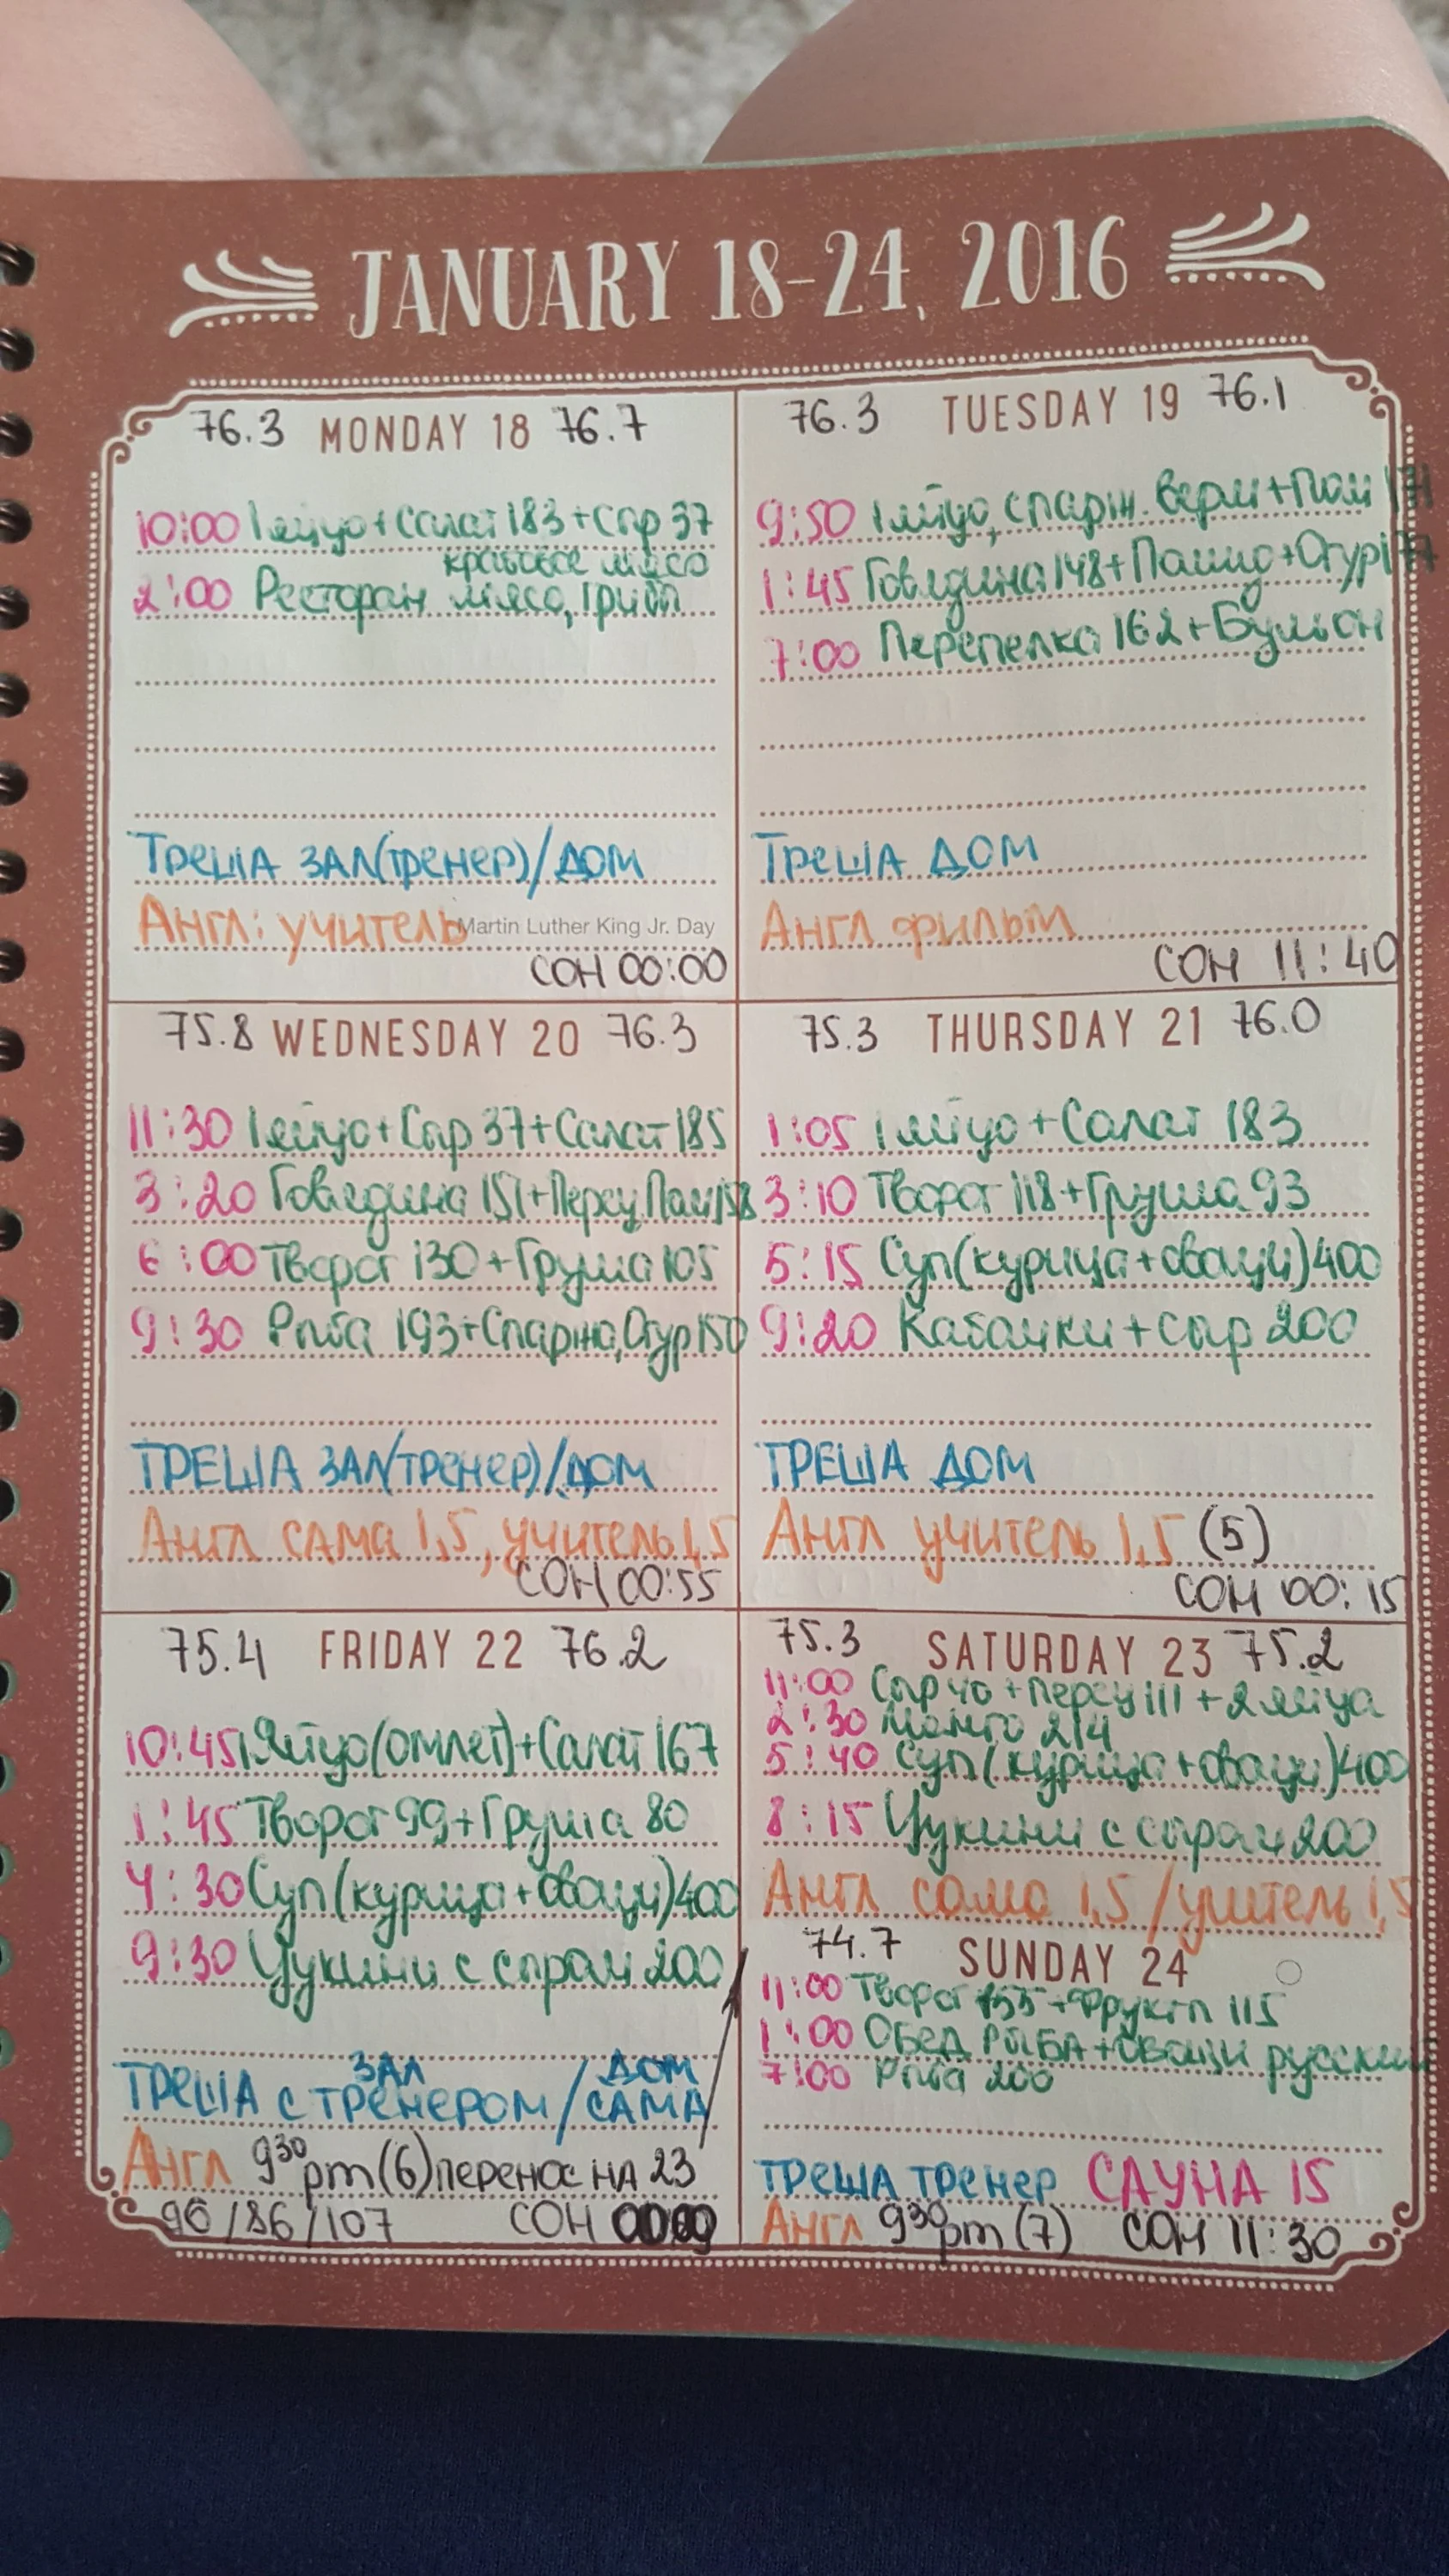 JANUARY 18-24, 2016
76.3 MONDAY 18 76.7
10:00 1 яйцо+Салат 183+Сыр 37
крабовое мясо
2:00 Ресторан мясо, гриб
ТРЕША ЗАЛ(тренер)/ДОМ
Англ: учитель Martin Luther King Jr. Day
СОН 00:00
76.3 TUESDAY 19 76.1
9:50 1 яйцо, спарж. верм+Пом 171
1:45 Говядина 148+Помид+Огур 177
7:00 Перепелка 162+Бульон
ТРЕША ДОМ
Англ фильм
СОН 11:40
75.8 WEDNESDAY 20 76.3
11:30 1 яйцо+Сыр 37+Салат 185
3:20 Говядина 151+Перец, Пом 158
6:00 Творог 130+Груша 105
9:30 Рыба 193+Спаржа, Огур 150
ТРЕША ЗАЛ(ТРЕНЕР)/ДОМ
Англ САМА 1,5, учитель 1,5
СОН 00:55
75.3 THURSDAY 21 76.0
1:05 1 яйцо+Салат 183
3:10 Творог 118+Груша 93
5:15 Суп(курица+овощи)400
9:20 Кабачки+сыр 200
ТРЕША ДОМ
Англ учитель 1,5 (5)
СОН 00:15
75.4 FRIDAY 22 76.2
10:45 1 Яйцо(омлет)+Салат 167
1:45 Творог 99+Груша 80
4:30 Суп(курица+овощи)400
9:30 Цукини с сыром 200
ЗАЛ ДОМ
ТРЕША С ТРЕНЕРОМ/САМА
Англ 9³⁰pm(6)перенос НА 23
96/86/107 СОН
75.3 SATURDAY 23 75.2
11:00 Сыр 40+перец 111+2 яйца
2:30 Манго 214
5:40 Суп(курица+овощи)400
8:15 Цукини с сыром 200
Англ сама 1,5/учитель 1,5
74.7 SUNDAY 24
11:00 Творог 155+Фрукты 115
1:00 ОБЕД РЫБА+овощи русский
7:00 Рыба 200
ТРЕША ТРЕНЕР САУНА 15
Англ 9³⁰pm(7) СОН 11:30